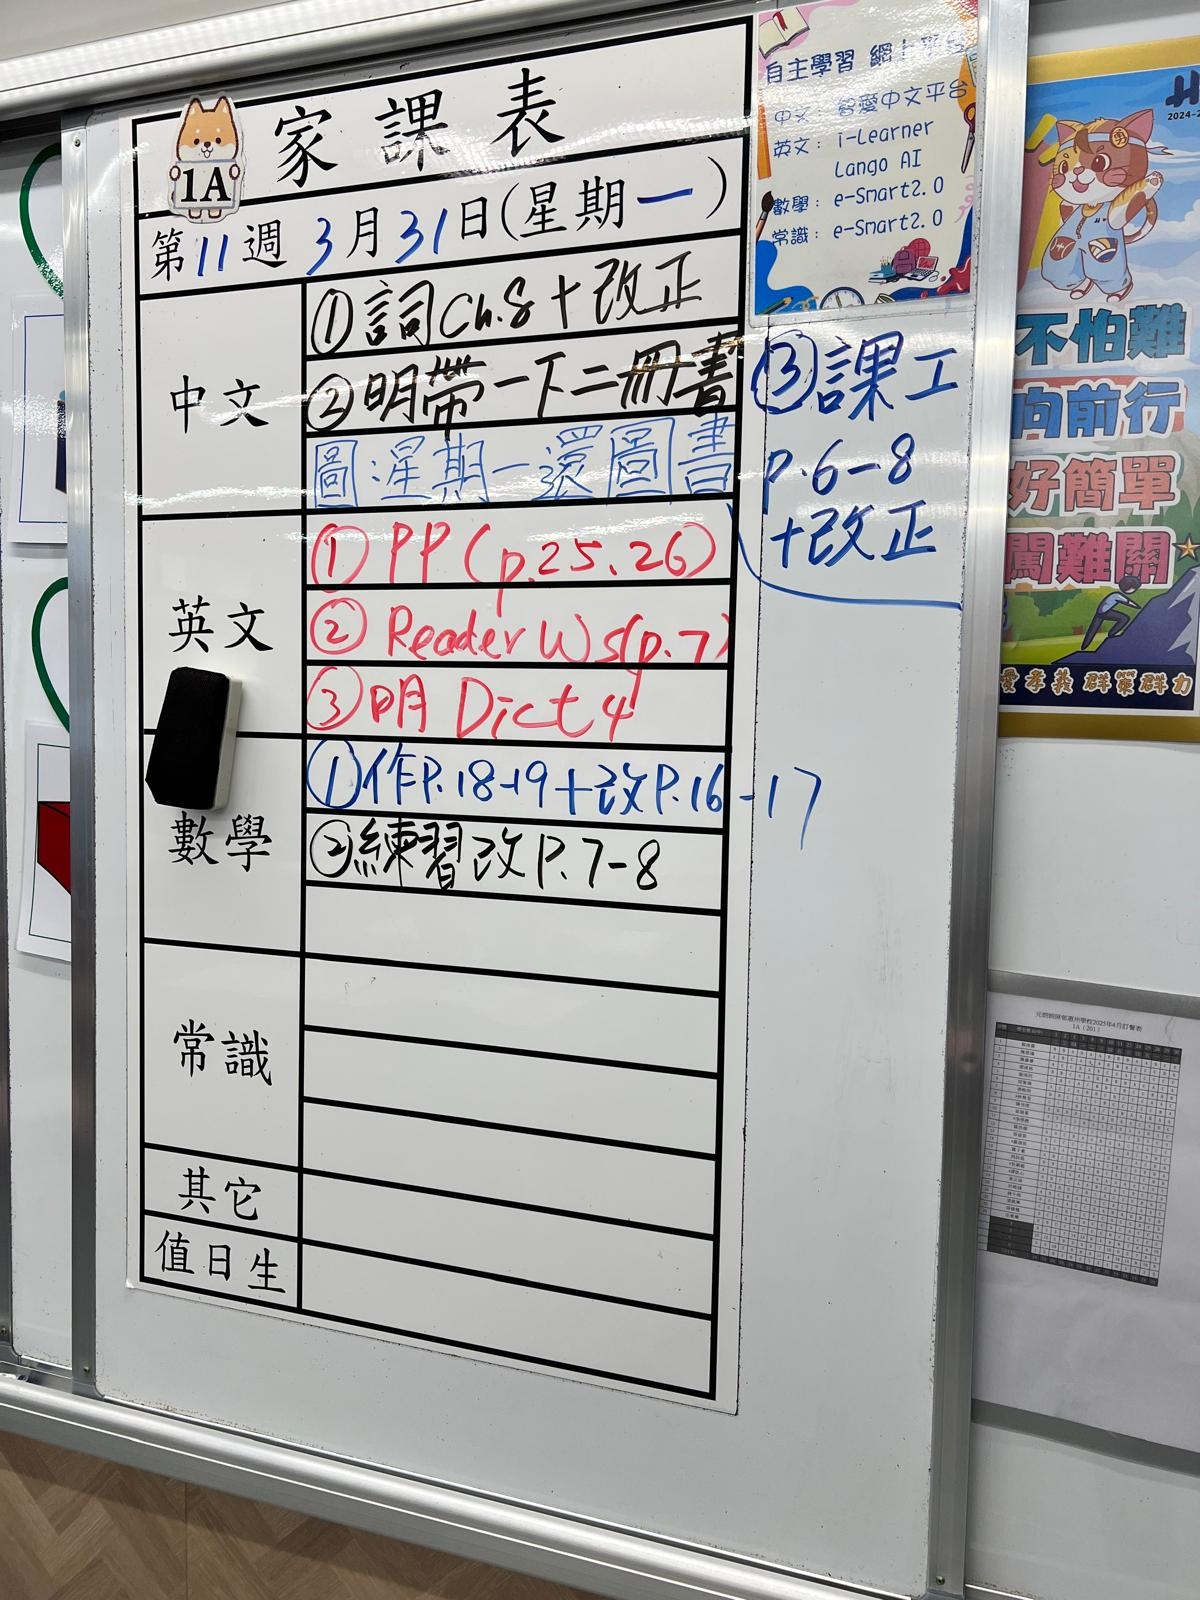 家課表
1A
第11週 3月31日(星期一)
中文
①詞Ch.8+改正
②明帶一下二冊書
圖:星期一還圖書
③課工
p.6-8
+改正
英文
① PP (p.25、26)
② Reader Ws(p.7)
③明 Dict 4
數學
①作P.18-19+改P.16-17
②練習改P.7-8
常識
其它
值日生
自主學習 網上平台
中文: 智愛中文平台
英文: i-Learner
Lango AI
數學: e-Smart2.0
常識: e-Smart2.0
不怕難
向前行
好簡單
闖難關
愛 孝義 群策群力
1A (201)